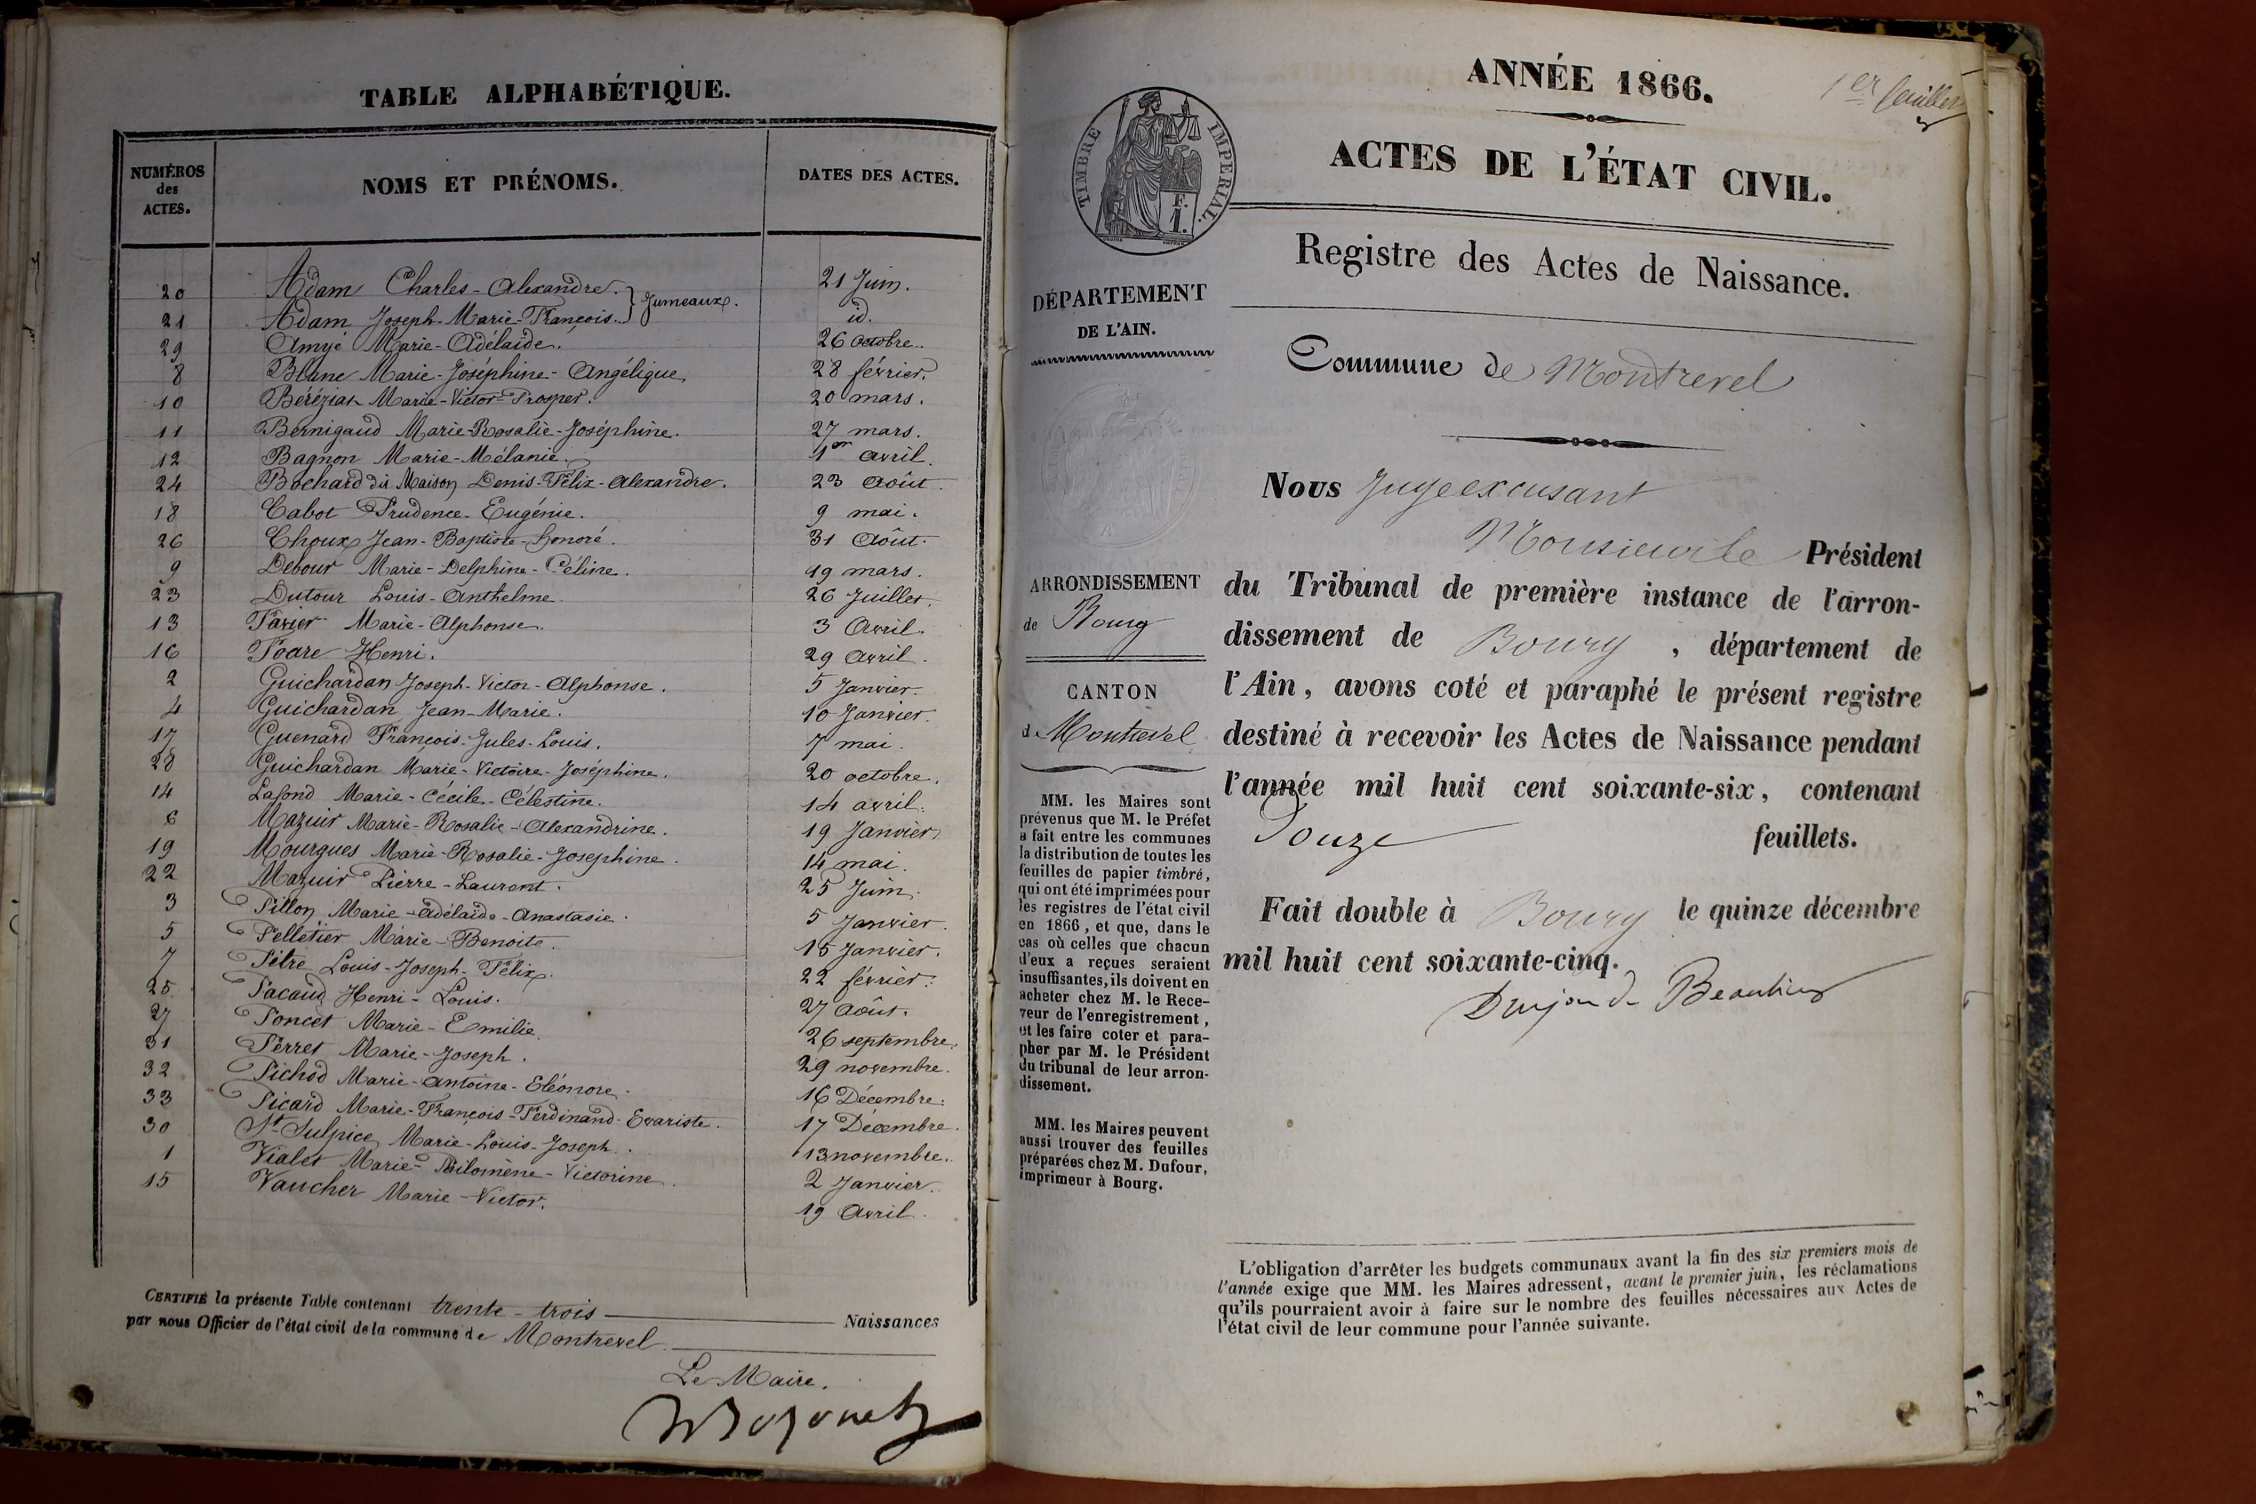 TABLE ALPHABÉTIQUE.
NUMÉROS des ACTES. NOMS ET PRÉNOMS. DATES DES ACTES.
20 Adam Charles-Alexandre. } Jumeaux. 21 Juin.
21 Adam Joseph-Marie-François. id.
29 Amyé Marie-Adélaide. 26 octobre.
8 Blanc Marie-Joséphine-Angélique 28 février.
10 Béréziat Marie-Victor-Prosper. 20 mars.
11 Bernigaud Marie-Rosalie-Joséphine. 27 mars.
12 Bagnon Marie-Mélanie. 1er avril.
24 Bochard dit Maison Denis-Félix-Alexandre. 23 Août.
18 Cabot Prudence-Eugénie. 9 mai.
26 Choux Jean-Baptiste-honoré. 31 Août.
9 Debour Marie-Delphine-Céline. 19 mars.
23 Dutour Louis-Anthelme. 26 Juillet.
13 Favier Marie-Alphonse. 3 Avril.
16 Foare Henri. 29 avril.
2 Guichardan Joseph-Victor-Alphonse. 5 Janvier.
4 Guichardan Jean-Marie. 10 Janvier.
17 Guenard François-Jules-Louis. 7 mai.
28 Guichardan Marie-Victoire-Joséphine. 20 octobre.
14 Lafond Marie-Cécile-Célestine. 14 avril.
6 Mazuir Marie-Rosalie-Alexandrine. 19 Janvier
19 Mourgues Marie-Rosalie-Josephine. 14 mai.
22 Mazuir Pierre-Laurent. 25 Juin.
3 Pillon Marie-Adélaide-Anastasie. 5 Janvier.
5 Pelletier Marie-Benoite. 15 Janvier.
7 Pitre Louis-Joseph-Félix. 22 février.
25 Pacaud Henri-Louis. 27 Août.
27 Poncet Marie-Emilie. 26 septembre.
31 Perret Marie-Joseph. 29 novembre.
32 Pichod Marie-Antoine-Eléonore. 16 Décembre.
33 Picard Marie-François-Ferdinand-Evariste. 17 Décembre.
30 St Sulpice Marie-Louis-Joseph. 13 novembre.
1 Vialet Marie-Philomène-Victorine. 2 Janvier.
15 Vaucher Marie-Victor. 19 Avril.
CERTIFIÉ la présente Table contenant trente-trois Naissances
par nous Officier de l'état civil de la commune de Montrevel
Le Maire.
ANNÉE 1866.
1er feuillet
TIMBRE IMPÉRIAL.
F. 1.
ACTES DE L'ÉTAT CIVIL.
Registre des Actes de Naissance.
DÉPARTEMENT
DE L'AIN.
Commune de Montrevel
ARRONDISSEMENT
de Bourg
CANTON
de Montrevel
MM. les Maires sont
prévenus que M. le Préfet
a fait entre les communes
la distribution de toutes les
feuilles de papier timbré,
qui ont été imprimées pour
les registres de l'état civil
en 1866, et que, dans le
cas où celles que chacun
d'eux a reçues seraient
insuffisantes, ils doivent en
acheter chez M. le Rece-
veur de l'enregistrement,
et les faire coter et para-
pher par M. le Président
du tribunal de leur arron-
dissement.
MM. les Maires peuvent
aussi trouver des feuilles
préparées chez M. Dufour,
imprimeur à Bourg.
Nous Juge excusant
Monsieur le Président
du Tribunal de première instance de l'arron-
dissement de Bourg, département de
l'Ain, avons coté et paraphé le présent registre
destiné à recevoir les Actes de Naissance pendant
l'année mil huit cent soixante-six, contenant
Douze feuillets.
Fait double à Bourg le quinze décembre
mil huit cent soixante-cinq.
L'obligation d'arrêter les budgets communaux avant la fin des six premiers mois de
l'année exige que MM. les Maires adressent, avant le premier juin, les réclamations
qu'ils pourraient avoir à faire sur le nombre des feuilles nécessaires aux Actes de
l'état civil de leur commune pour l'année suivante.